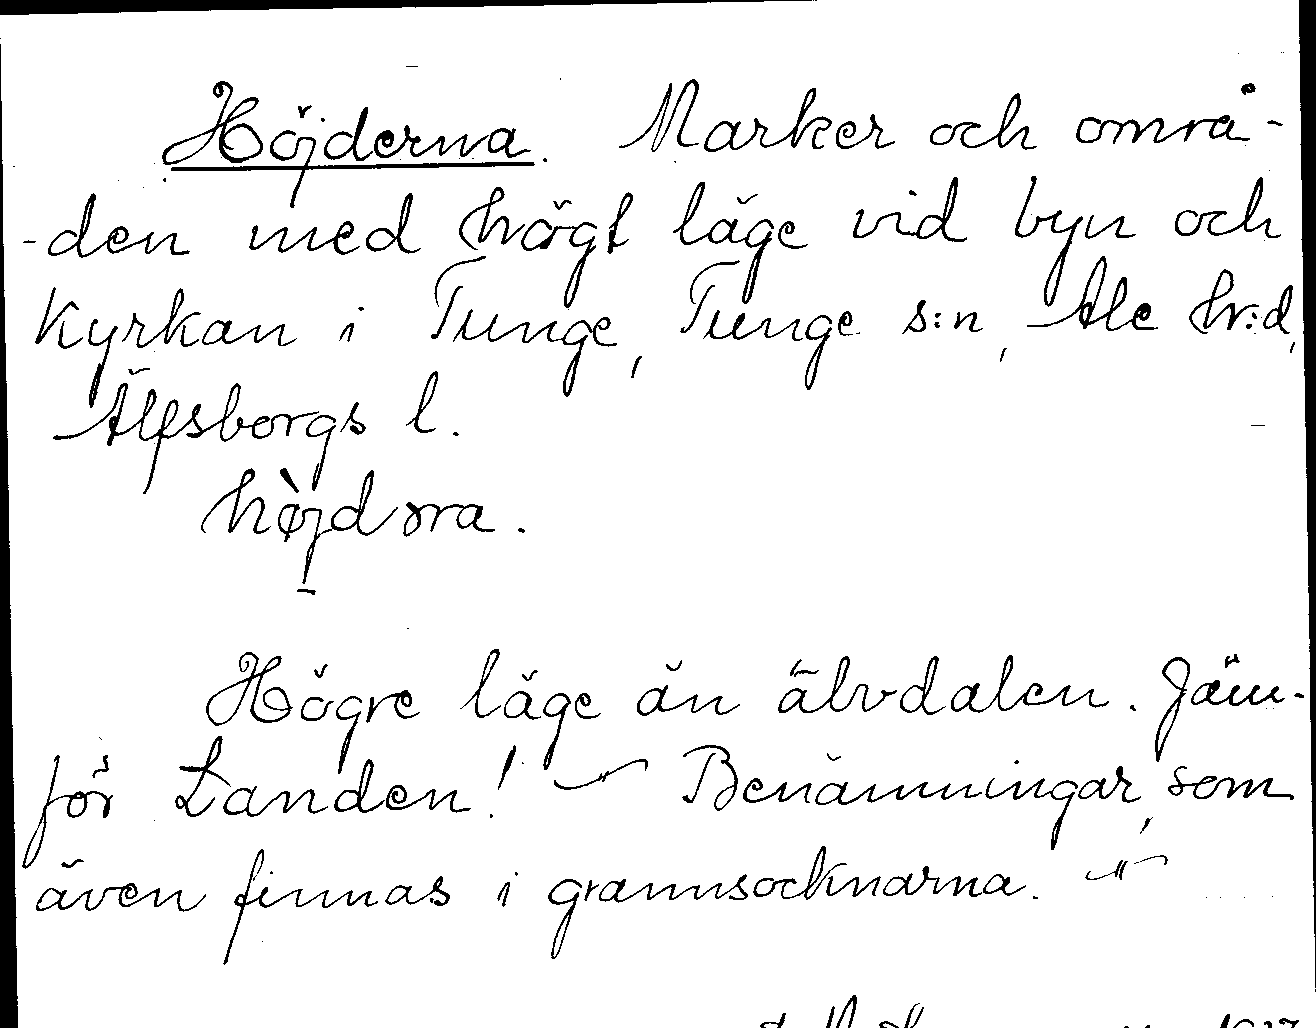 Höjderna. Marker och områ-
-den med högt läge vid byn och
kyrkan i Tunge, Tunge s:n, Ale hr:d,
Älfsborgs l.
Högre läge än älvdalen. Jäm-
för Landen! — " — Benämningar, som
även finnas i grannsocknarna. — " —